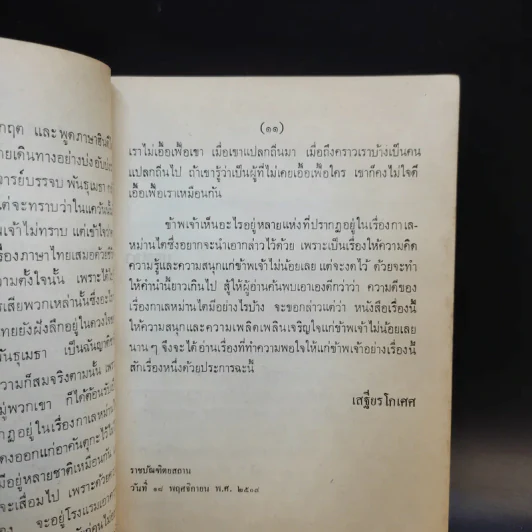 กฤต และพูดภาษาฮินดี
ายเดินทางอย่างบ่งอับประ
ารย์บรรจบ พันธุเมธา ก
ต่จะทราบว่าในแคว้นนั้น
พเจ้าไม่ทราบ แต่เข้าใจว่า
รื่องภาษาไทยเสมอด้วยชีวิ
วามตั้งใจนั้น เพราะได้ไ
รเสียพวกเหล่านั้นซึ่งอะไร
ทยยังฝังลึกอยู่ในดวงใจข
พันธุเมธา เป็นฉันญาติ
วามก็สมจริงตามนั้น เพร
มู่พวกเขา ก็ได้ต้อนรับเ
ากฏอยู่ในเรื่องกาเลหม่าน
ดงออกแก่อาคันตุกะไว้ใน
มีอยู่หลายชาติเหมือนกัน แ
จะเสื่อมไป เพราะด้วยคว
อยู่โรงแรมเอาค
(๑๑)
เราไม่เอื้อเฟื้อเขา เมื่อเขาแปลกถิ่นมา เมื่อถึงคราวเราบ้างเป็นคน
แปลกถิ่นไป ถ้าเขารู้ว่าเป็นผู้ที่ไม่เคยเอื้อเฟื้อใคร เขาก็คงไม่ใจดี
เอื้อเฟื้อเราเหมือนกัน
ข้าพเจ้าเห็นอะไรอยู่หลายแห่งที่ปรากฏอยู่ในเรื่องกาเล-
หม่านไตซึ่งอยากจะนำเอากล่าวไว้ด้วย เพราะเป็นเรื่องให้ความคิด
ความรู้และความสนุกแก่ข้าพเจ้าไม่น้อยเลย แต่จะงดไว้ ด้วยจะทำ
ให้คำนำนี้ยาวเกินไป สู้ให้ผู้อ่านค้นพบเอาเองดีกว่าว่า ความดีของ
เรื่องกาเลหม่านไตมีอย่างไรบ้าง จะขอกล่าวแต่ว่า หนังสือเรื่องนี้
ให้ความสนุกและความเพลิดเพลินเจริญใจแก่ข้าพเจ้าไม่น้อยเลย
นานๆ จึงจะได้อ่านเรื่องที่ทำความพอใจให้แก่ข้าพเจ้าอย่างเรื่องนี้
สักเรื่องหนึ่งด้วยประการฉะนี้
เสฐียรโกเศศ
ราชบัณฑิตยสถาน
วันที่ ๑๘ พฤศจิกายน พ.ศ. ๒๕๐๔